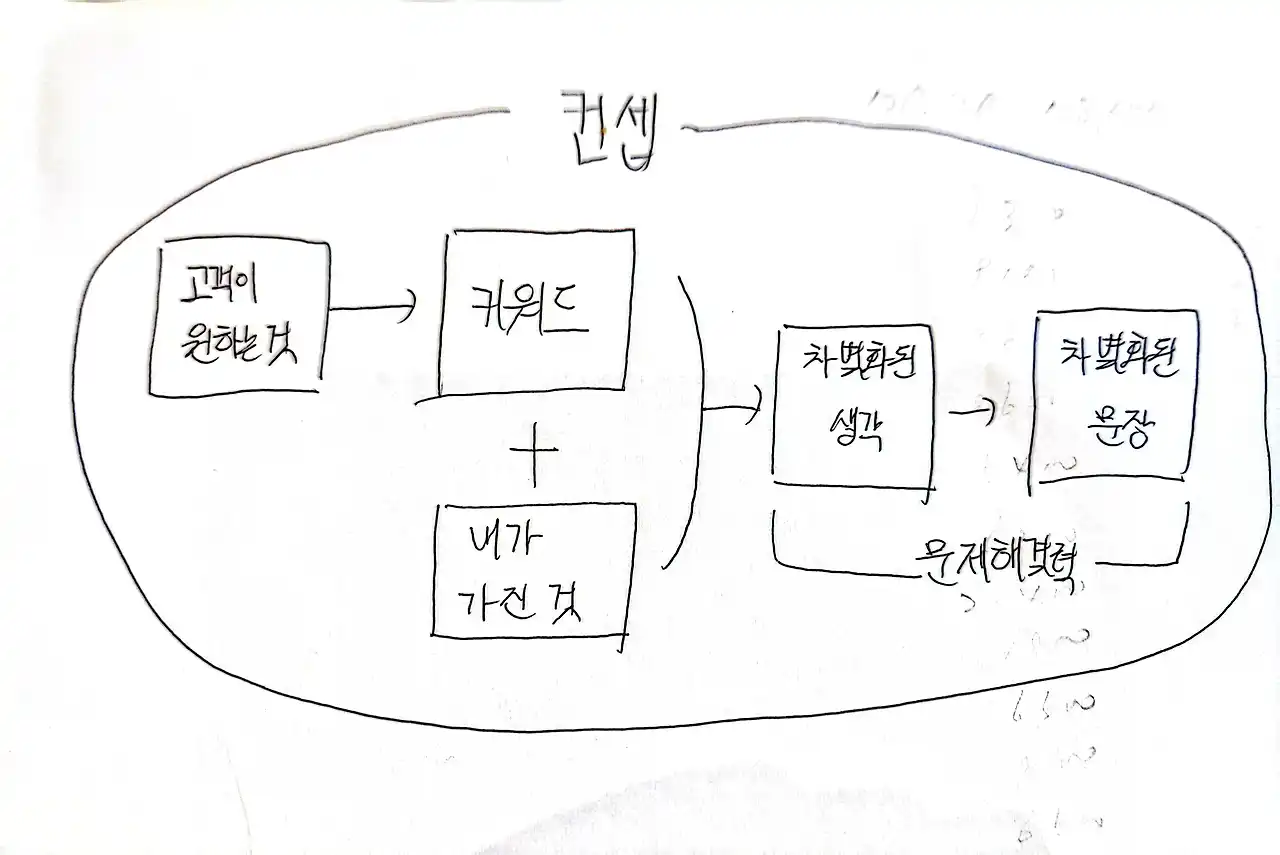 컨셉
고객이
원하는것
키워드
+
내가
가진 것
차별화된
생각
차별화된
문장
문제해결력